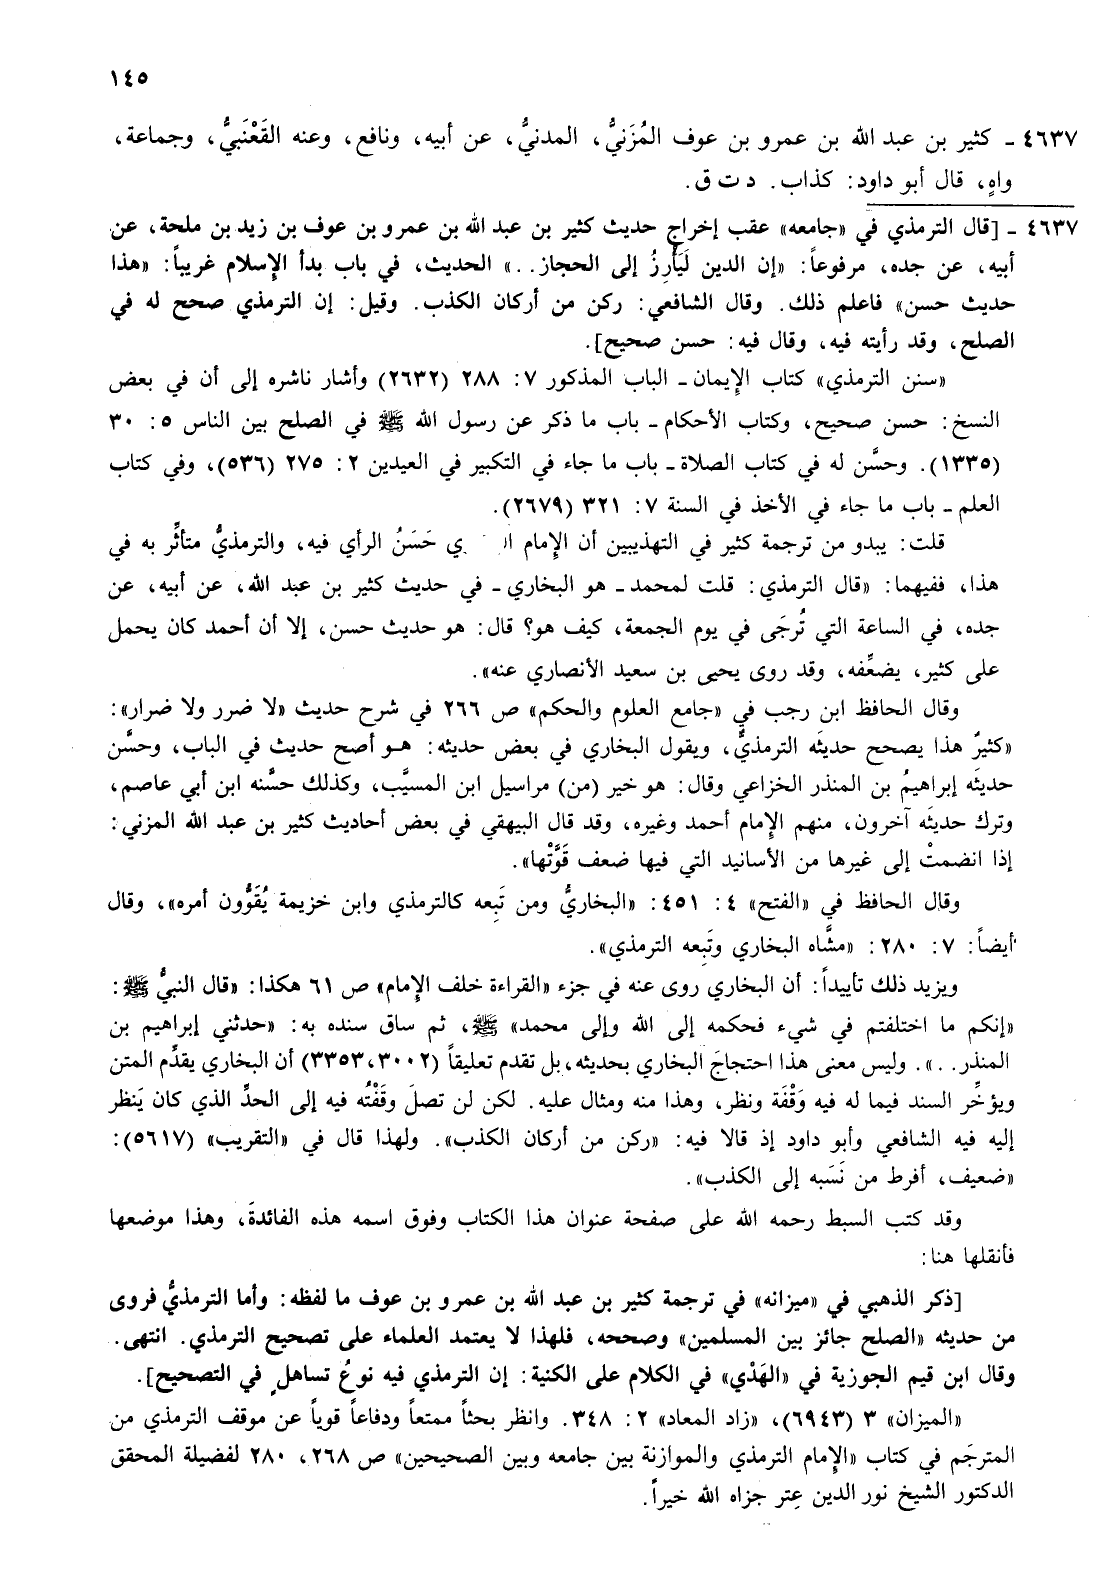 ١٤٥
٤٦٣٧ ـ كثير بن عبد الله بن عمرو بن عوف المُزَنيُّ، المدنيُّ، عن أبيه، ونافع، وعنه القَعْنَبيُّ، وجماعة،
واهٍ، قال أبو داود: كذاب. د ت ق.
٤٦٣٧ ـ [قال الترمذي في «جامعه» عقب إخراج حديث كثير بن عبد الله بن عمرو بن عوف بن زيد بن ملحة، عن
أبيه، عن جده، مرفوعاً: «إن الدين لَيَأْرِزُ إلى الحجاز..» الحديث، في باب بدأ الإسلام غريباً: «هذا
حديث حسن» فاعلم ذلك. وقال الشافعي: ركن من أركان الكذب. وقيل: إن الترمذي صحح له في
الصلح، وقد رأيته فيه، وقال فيه: حسن صحيح].
«سنن الترمذي» كتاب الإيمان ـ الباب المذكور ٧: ٢٨٨ (٢٦٣٢) وأشار ناشره إلى أن في بعض
النسخ: حسن صحيح، وكتاب الأحكام ـ باب ما ذكر عن رسول الله ﷺ في الصلح بين الناس ٥: ٣٠
(١٣٣٥). وحسَّن له في كتاب الصلاة ـ باب ما جاء في التكبير في العيدين ٢: ٢٧٥ (٥٣٦)، وفي كتاب
العلم ـ باب ما جاء في الأخذ في السنة ٧: ٣٢١ (٢٦٧٩).
قلت: يبدو من ترجمة كثير في التهذيبين أن الإمام حَسَنُ الرأي فيه، والترمذيُّ متأثِّر به في
هذا، ففيهما: «قال الترمذي: قلت لمحمد ـ هو البخاري ـ في حديث كثير بن عبد الله، عن أبيه، عن
جده، في الساعة التي تُرجَى في يوم الجمعة، كيف هو؟ قال: هو حديث حسن، إلا أن أحمد كان يحمل
على كثير، يضعِّفه، وقد روى يحيى بن سعيد الأنصاري عنه».
وقال الحافظ ابن رجب في «جامع العلوم والحكم» ص ٢٦٦ في شرح حديث «لا ضرر ولا ضرار»:
«كثيرٌ هذا يصحح حديثَه الترمذيُّ، ويقول البخاري في بعض حديثه: هو أصح حديث في الباب، وحسَّن
حديثَه إبراهيمُ بن المنذر الخزاعي وقال: هو خير (من) مراسيل ابن المسيَّب، وكذلك حسَّنه ابن أبي عاصم،
وترك حديثَه آخرون، منهم الإمام أحمد وغيره، وقد قال البيهقي في بعض أحاديث كثير بن عبد الله المزني:
إذا انضمتْ إلى غيرها من الأسانيد التي فيها ضعف قَوَّتْها».
وقال الحافظ في «الفتح» ٤: ٤٥١: «البخاريُّ ومن تَبِعه كالترمذي وابن خزيمة يُقَوُّون أمره»، وقال
أيضاً: ٧: ٢٨٠: «مشَّاه البخاري وتَبِعه الترمذي».
ويزيد ذلك تأييداً: أن البخاري روى عنه في جزء «القراءة خلف الإمام» ص ٦١ هكذا: «قال النبيُّ ﷺ:
«إنكم ما اختلفتم في شيء فحكمه إلى الله وإلى محمد» ﷺ، ثم ساق سنده به: «حدثني إبراهيم بن
المنذر..». وليس معنى هذا احتجاجَ البخاري بحديثه، بل تقدم تعليقاً (٣٠٠٢، ٣٣٥٣) أن البخاري يقدِّم المتن
ويؤخِّر السند فيما له فيه وَقْفَة ونظر، وهذا منه ومثال عليه. لكن لن تصلَ وقَفْتُه فيه إلى الحدِّ الذي كان يَنظر
إليه فيه الشافعي وأبو داود إذ قالا فيه: «ركن من أركان الكذب». ولهذا قال في «التقريب» (٥٦١٧):
«ضعيف، أفرط من نَسَبه إلى الكذب».
وقد كتب السبط رحمه الله على صفحة عنوان هذا الكتاب وفوق اسمه هذه الفائدةَ، وهذا موضعها
فأنقلها هنا:
[ذكر الذهبي في «ميزانه» في ترجمة كثير بن عبد الله بن عمرو بن عوف ما لفظه: وأما الترمذيُّ فروى
من حديثه «الصلح جائز بين المسلمين» وصححه، فلهذا لا يعتمد العلماء على تصحيح الترمذي. انتهى.
وقال ابن قيم الجوزية في «الهَدْي» في الكلام على الكنية: إن الترمذي فيه نوعُ تساهلٍ في التصحيح].
«الميزان» ٣ (٦٩٤٣)، «زاد المعاد» ٢: ٣٤٨. وانظر بحثاً ممتعاً ودفاعاً قوياً عن موقف الترمذي من
المترجَم في كتاب «الإمام الترمذي والموازنة بين جامعه وبين الصحيحين» ص ٢٦٨، ٢٨٠ لفضيلة المحقق
الدكتور الشيخ نور الدين عِتر جزاه الله خيراً.